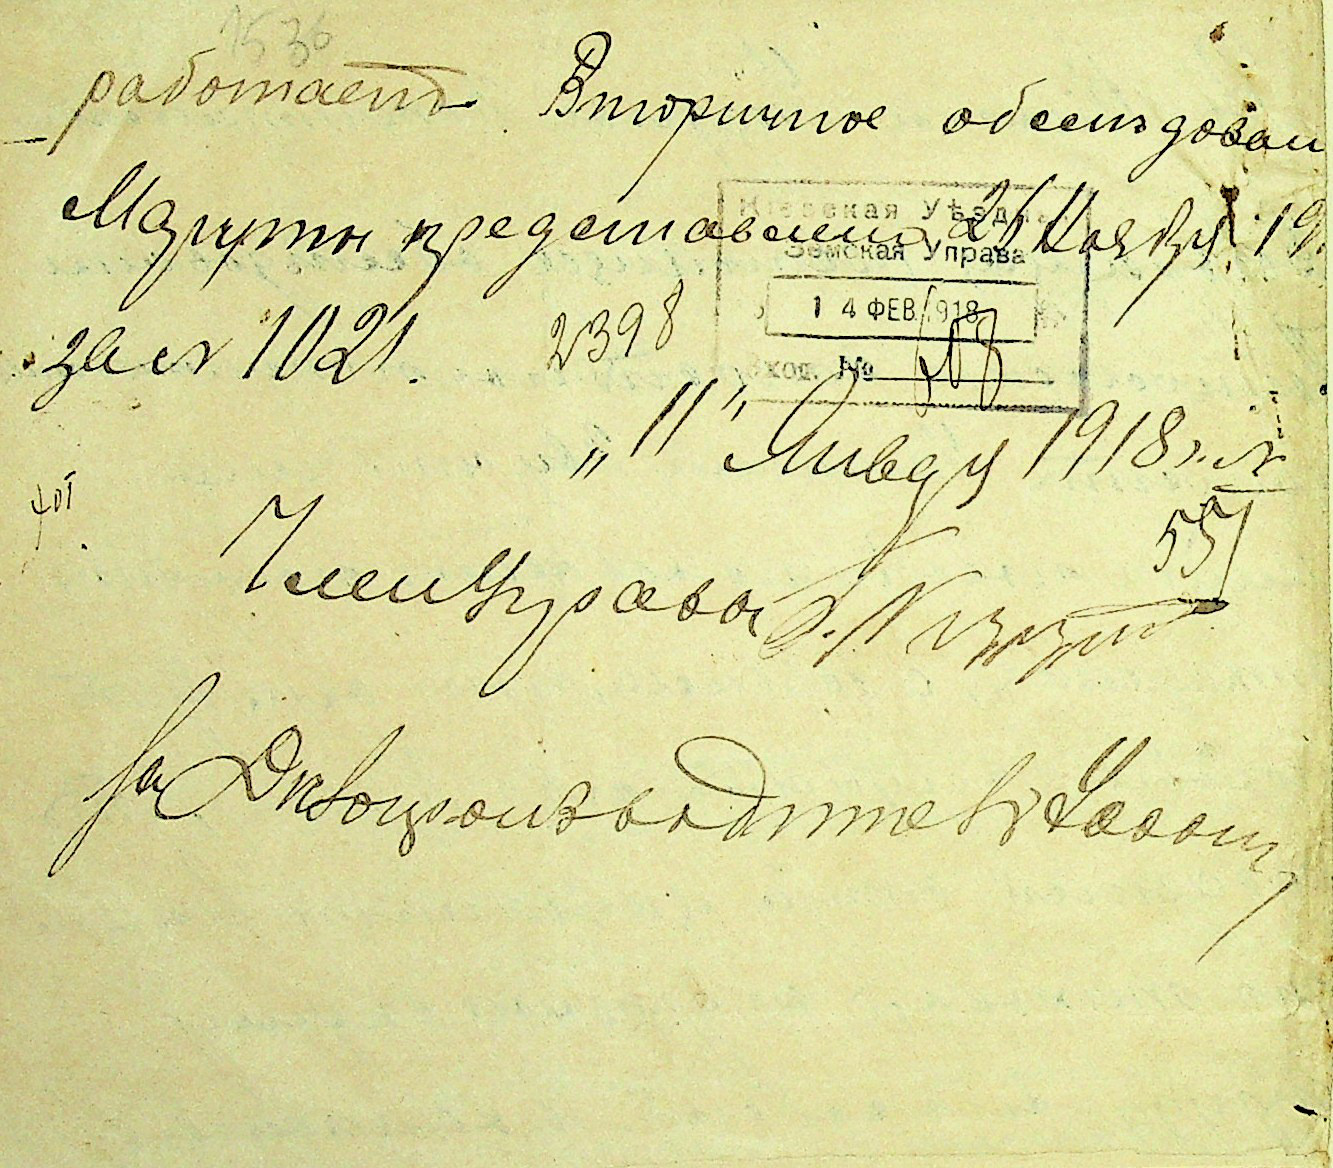 1536
работаетъ Вторичное обслѣдован
представлено 21 Ноября 19
за № 1021.
2398
Кіевская Уѣздн.
Земская Управа
14 ФЕВ. 1918
Вход. №
„11" Января 1918 г. №
551
Член Управы
За Дѣлопроизводителя